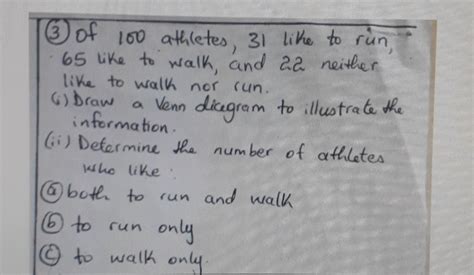 ③ Of 100 athletes, 31 like to run,
65 like to walk, and 22 neither
like to walk nor run.
(i) Draw a Venn diagram to illustrate the
information.
(ii) Determine the number of athletes
who like :
ⓐ both to run and walk
ⓑ to run only
ⓒ to walk only.